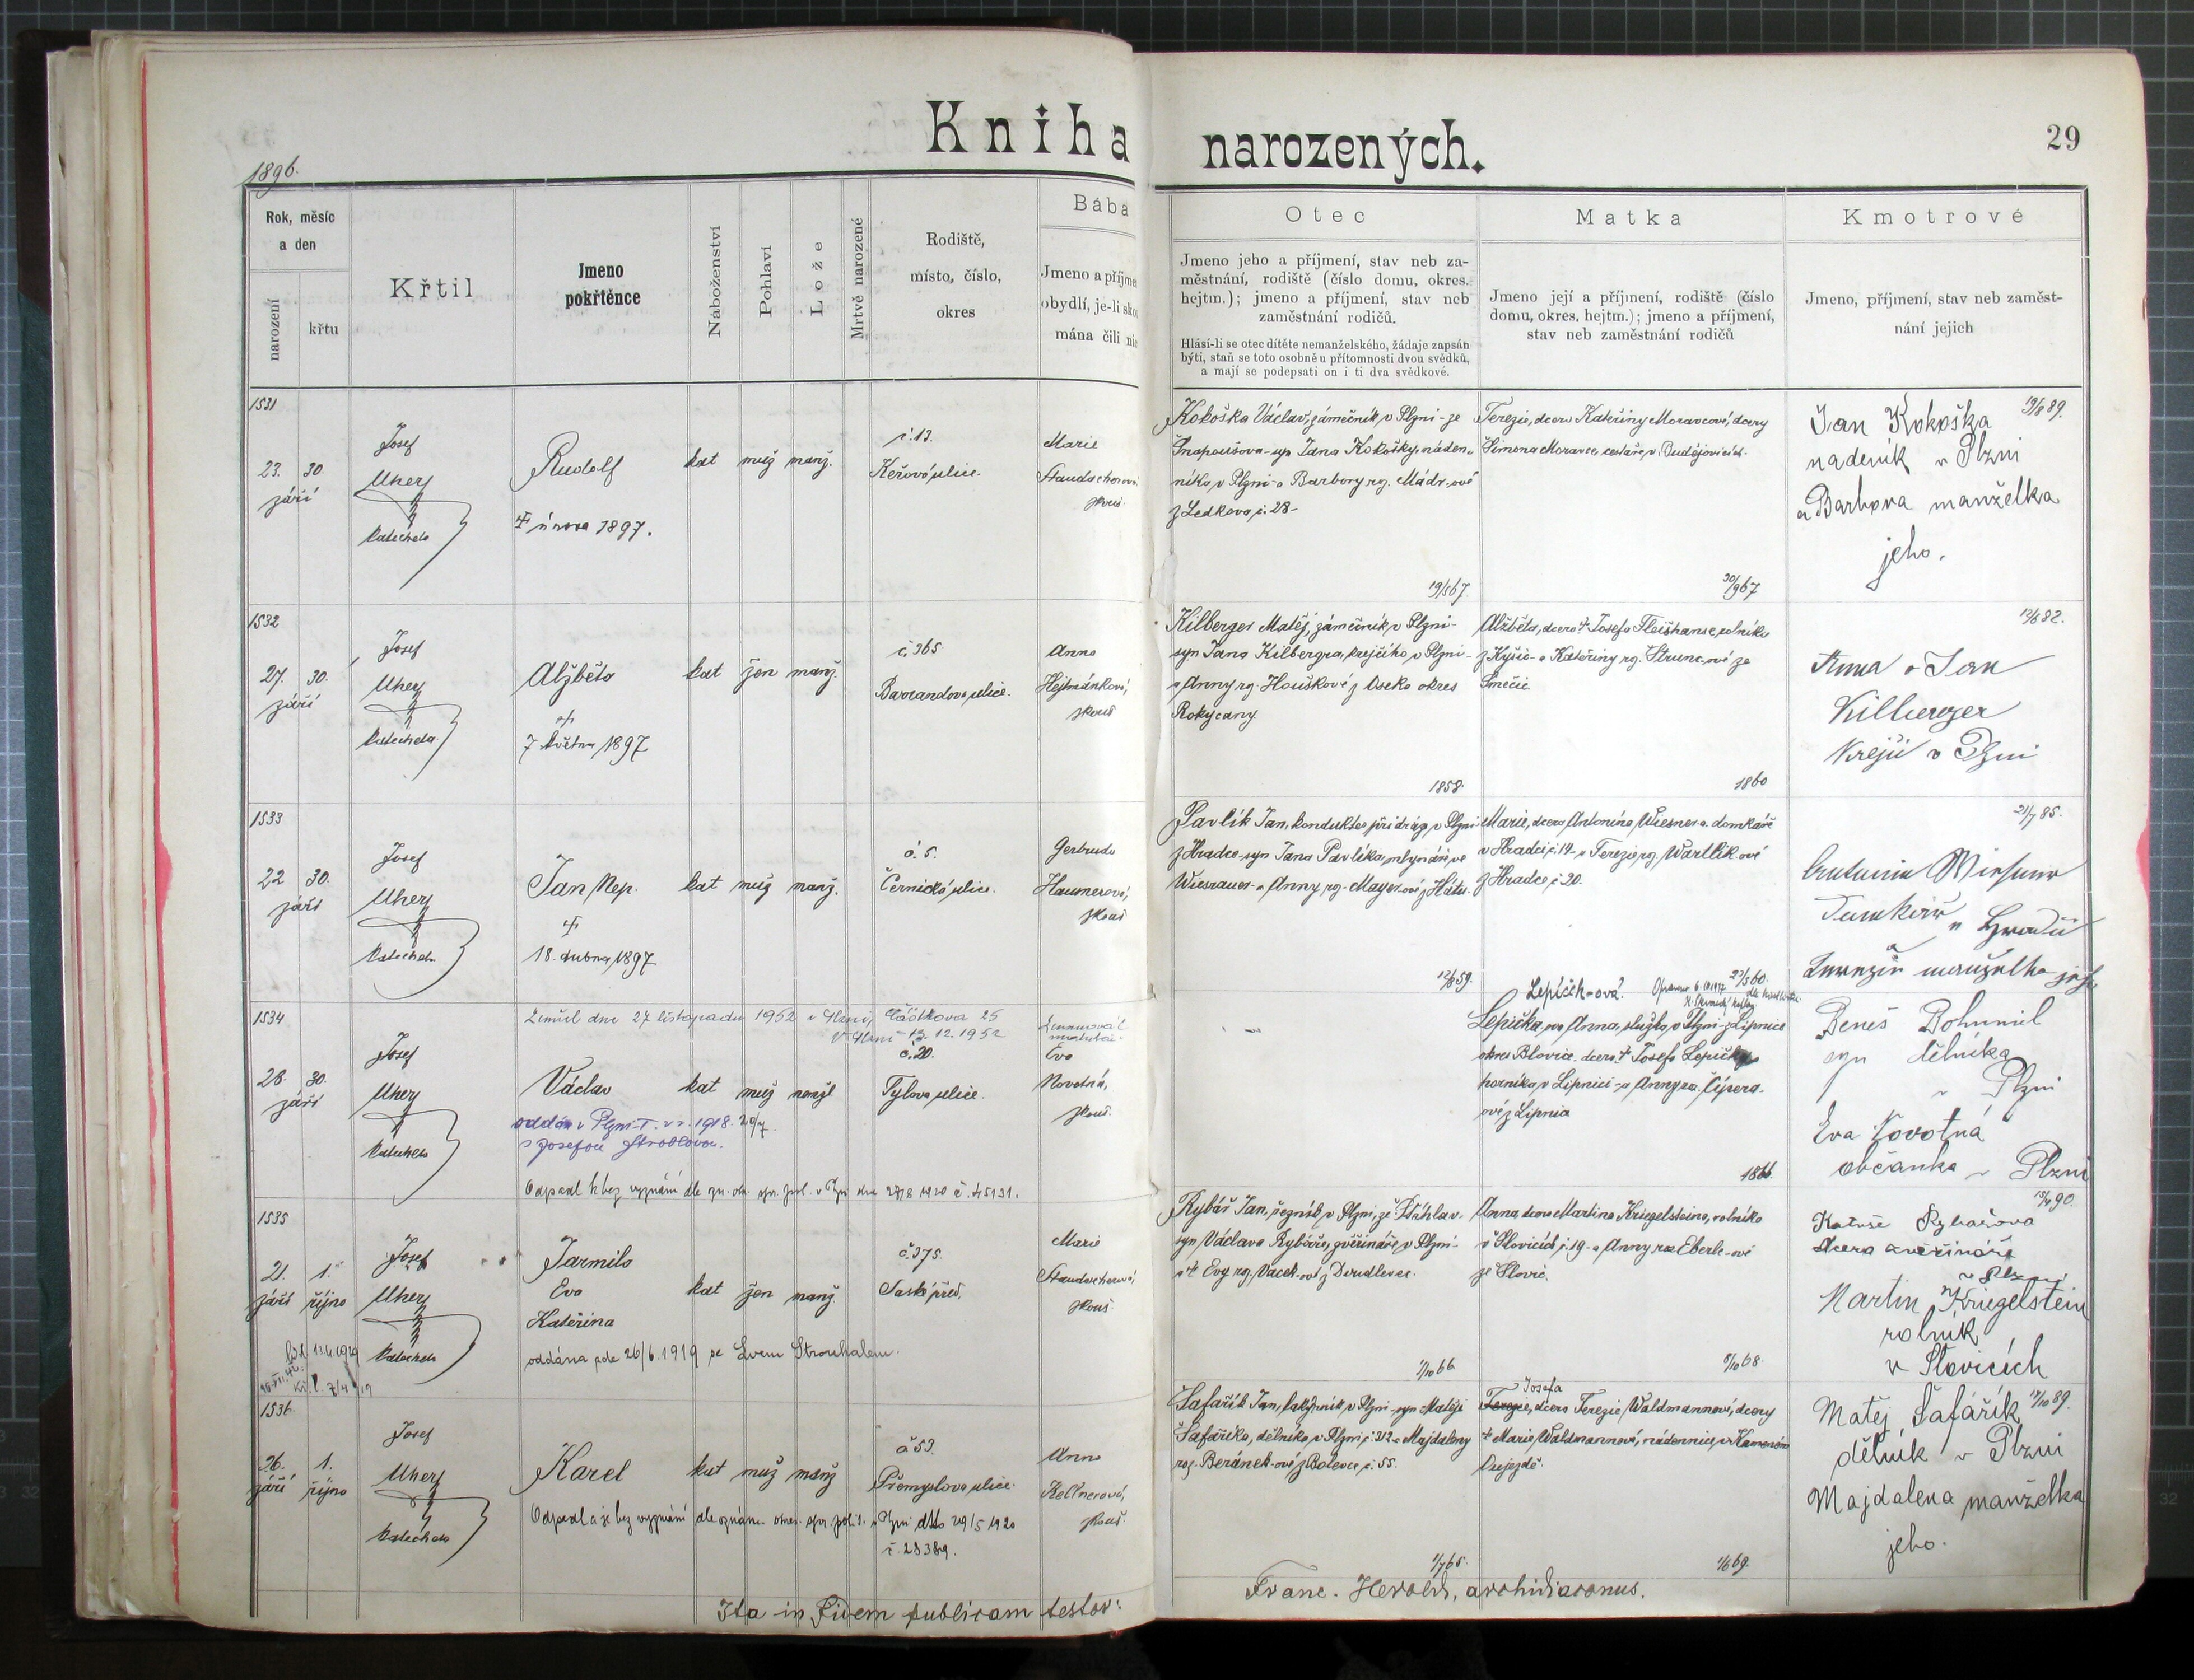 Kniha narozených.
29
1896.
Rok, měsíc
a den
narození
křtu
Křtil
Jmeno
pokřtěnce
Náboženství
Pohlaví
Lože
Mrtvě narozené
Rodiště,
místo, číslo,
okres
Bába
Jmeno a příjme
obydlí, je-li sko
mána čili nic
Otec
Jmeno jeho a příjmení, stav neb za-
městnání, rodiště (číslo domu, okres.
hejtm.); jmeno a příjmení, stav neb
zaměstnání rodičů.
Hlásí-li se otec dítěte nemanželského, žádaje zapsán
býti, staň se toto osobně u přítomnosti dvou svědků,
a mají se podepsati on i ti dva svědkové.
Matka
Jmeno její a příjmení, rodiště (číslo
domu, okres. hejtm.); jmeno a příjmení,
stav neb zaměstnání rodičů
Kmotrové
Jmeno, příjmení, stav neb zaměst-
nání jejich
1531
23. 30
září
Josef
Uherj
katecheta
Rudolf
února 1897.
kat muž manž.
č. 13.
Keřová ulice.
Marie
Staudacherová
zkouš.
Kokoška Václav, zámečník v Plzni - ze
syn Jana Kokošky, náden-
níka v Plzni - a Barbory rz. Mádr-ové
z Ledkova č. 28 -
19/5 67.
Terezie, dcera Kateřiny Moravcové, dcery
Šimona Moravce, cestáře v Budějovicích.
30/9 67
19/8 89.
Jan Kokoška
nádeník v Plzni
a Barbora manželka
jeho.
1532
27. 30.
září
Josef
Uherj
katecheta
Alžběta
7 května 1897
kat žen manž.
č. 365
ulice.
Anna
Hejtmánková,
zkouš
Kilberger Matěj, zámečník v Plzni -
syn Jana Kilbergra, krejčího v Plzni -
a Anny rz. Houškové z Oseka okres
Rokycany
1858.
Alžběta, dcera † Josefa Fleišhanse, rolníka
z Kyšic - a Kateřiny rz. Strunc-ové ze
Smečic.
1860
12/6 82.
Anna a Jan
Kilberger
Krejčí v Plzni
1533
22 30.
září
Josef
Uherj
katecheta
Jan Nep.
18. dubna 1897
kat muž manž.
č. 5.
Černická ulice.
Gertruda
Haumerová,
zkouš
Pavlík Jan, kondukter při dráze v Plzni
z Hradce - syn Jana Pavlíka, mlynáře ve
Wiesnauer - a Anny rz. Mayer-ové z
12/8 59.
Marie, dcera Antonína Wiesnera, domkáře
v Hradci č. 14 - a Terezie rz. Wartlík-ové
z Hradce č. 20.
23/5 60.
21/7 85.
1534
28. 30.
září
Josef
Uherj
katecheta
Zemřel dne 27 listopadu 1952 v Plzni, Částkova 25
V Plzni - 13. 12. 1952
Václav
oddán v Plzni - I. v r. 1918. 20/7.
s Josefou
Odpadl k bez vyznání dle v Plzni dne 27/8 1920 č. 45131.
kat muž nemžl
č. 20.
Tylova ulice.
Eva
Novotná,
zkouš.
Lepičk-ová.
Lepička-ova Anna, služka v Plzni - z Lipnice
okres Blovice. dcera † Josefa Lepičky
horníka v Lipnici - a Anny rz. Čípera-
ové z Lipnia
1866.
Beneš Bohumil
syn dělníka
v Plzni
Eva Novotná
občanka v Plzni
1535
21. 1.
září října
Josef
Uherj
katecheta
Jarmila
Eva
Kateřina
oddána zde 26/6. 1919 se Lvem Strouhalem.
kat žen manž.
č. 375.
Saské před.
Marie
Staudacherová,
zkouš.
Rybář Jan, řezník v Plzni, ze Šťáhlav.
syn Václava Rybáře, zvěřináře v Plzni -
a † Evy rz. Vacek-ové z Doudlevec.
7/10 66.
Anna, dcera Martina Kriegelsteina, rolníka
v Slovicích č. 19 - a Anny rz. Eberle-ové
ze Slovic.
5/10 68.
15/4 90.
Katuše Rybářova
dcera zvěřináře
v Plzni
Martin Kriegelstein
rolník
v Slovicích
1536.
26. 1.
září října
Josef
Uherj
katecheta
Karel
Odpadl a je bez vyznání dle oznám. okres. spr. pol. v Plzni dtto 29/5 1920
č. 28389.
kat muž manž
č 53.
Přemyslova ulice.
Anna
Kellnerová,
zkouš.
Šafařík Jan, lakýrník v Plzni - syn Matěje
Šafaříka, dělníka v Plzni č. 312 a Majdaleny
roz. Beránek-ové z Bolevce č. 55.
1/7 65.
Josefa
Terezie, dcera Terezie Waldmannové, dcery
† Marie Waldmannové, nádennice v Kameném
Oujezdě.
1/6 69.
17/10 89.
Matěj Šafařík
dělník v Plzni
Majdalena manželka
jeho.
Ita in fidem publicam testor:
Franc. Herold, archidiaconus.